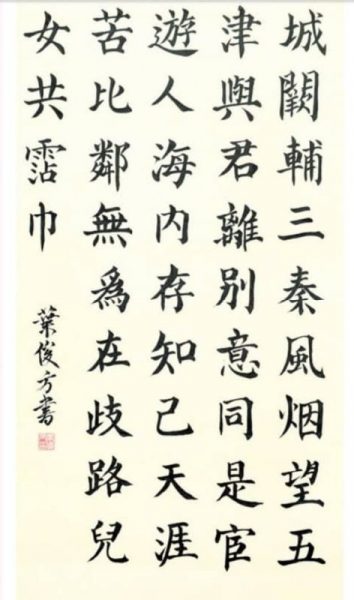 城闕輔三秦風烟望五
津與君離別意同是宦
遊人海内存知己天涯
苦比鄰無爲在歧路兒
女共霑巾
葉俊方書